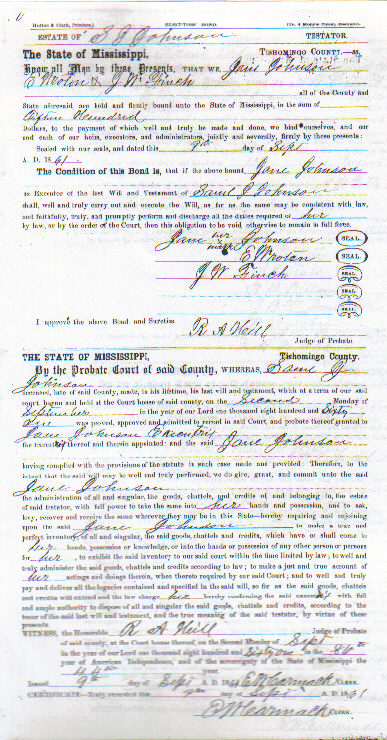 ESTATE OF S J Johnson TESTATOR.
The State of Mississippi, TISHOMINGO COUNTY—ss.
Know all Men by these Presents, THAT WE, Jane Johnson
E W Nolan & J W Finch
all of the County and
State aforesaid, are held and firmly bound unto the State of Mississippi, in the sum of
Fifteen Hundred
Dollars, to the payment of which well and truly be made and done, we bind ourselves, and our
and each of our heirs, executors, and administrators, jointly and severally, firmly by these presents:
Sealed with our seals, and dated this 9th day of Sept
A. D. 1861.
The Condition of this Bond is, that if the above bound Jane Johnson
as Executor of the last Will and Testament of Saml J Johnson
shall, well and truly carry out and execute the Will, as far as the same may be consistent with law,
and faithfully, truly, and promptly perform and discharge all the duties required of her
by law, or by the order of the Court, then this obligation to be void otherwise to remain in full force.
Jane her mark Johnson SEAL.
E W Nolan SEAL.
J W Finch SEAL.
SEAL.
SEAL.
I approve the above Bond and Sureties.
R A Hill
Judge of Probate
THE STATE OF MISSISSIPPI, Tishomingo County.
By the Probate Court of said County, WHEREAS, Saml J
Johnson
deceased, late of said County, made, in his lifetime, his last will and testament, which at a term of our said
court begun and held at the Court house of said county, on the Second Monday of
September in the year of our Lord one thousand eight hundred and Sixty
One was proved, approved and admitted to record in said Court, and probate thereof granted to
Jane Johnson Executrix
the execut thereof and therein appointed: and the said Jane Johnson
having complied with the provisions of the statute in such case made and provided: Therefore, to the
intent that the said will may be well and truly performed, we do give, grant, and commit unto the said
Jane Johnson
the administration of all and singular, the goods, chattels and credits, of and belonging to, the estate
of said testator, with full power to take the same into her hands and possession, and to ask,
levy, recover and receive the same wherever they may be in this State—hereby requiring and enjoining
upon the said Jane Johnson to make a true and
perfect inventory, of all and singular, the said goods, chattels and credits, which have or shall come to
her hands, possession or knowledge, or into the hands or possession of any other person or persons
for her, to exhibit the said inventory to our said court within the time limited by law; to well and
truly administer the said goods, chattels and credits according to law; to make a just and true account of
her actings and doings therein, when thereto required by our said Court; and to well and truly
pay and deliver all the legacies contained and specified in the said will, so far as the said goods, chattels
and credits will extend and the law charge her hereby confirming the said execut with full
and ample authority to dispose of all and singular the said goods, chattels and credits, according to the
tenor of the said last will and testament, and the true meaning of the said testator, by virtue of these
presents.
WITNESS, the Honorable R A Hill Judge of Probate
of said county, at the Court house thereof, on the Second Monday of Sept
in the year of our Lord one thousand eight hundred and Sixty One in the 86th
year of American Independence, and of the sovereignty of the State of Mississippi the
44th
Issued 9th day of Sept A. D. 1861 E W Carmack CLERK.
CERTIFICATE—Truly recorded the 9th day of Sept A. D. 1861
E W Carmack CLERK.